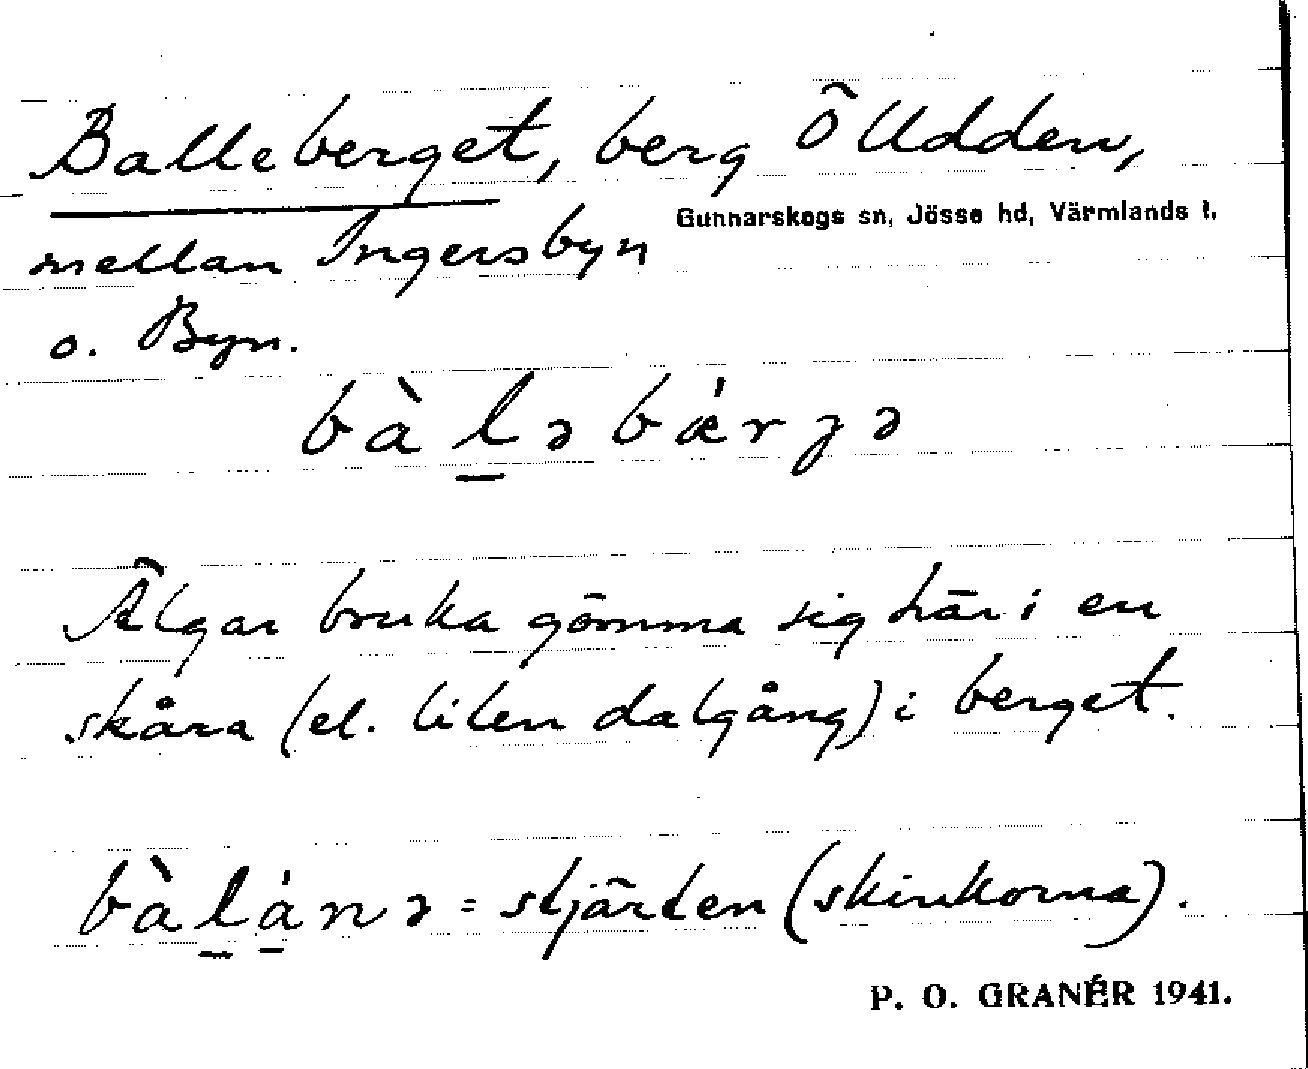 Balleberget, berg Ö Udden,
Gunnarskogs sn, Jösse hd, Värmlands l.
mellan Ingersbyn
o. Byn.
bàḻəbǽrgə
Älgar bruka gömma sig här i en
skåra (el. liten dalgång) i berget.
bàḻá̱nə = stjärten (skinkorna).
P. O. GRANÉR 1941.